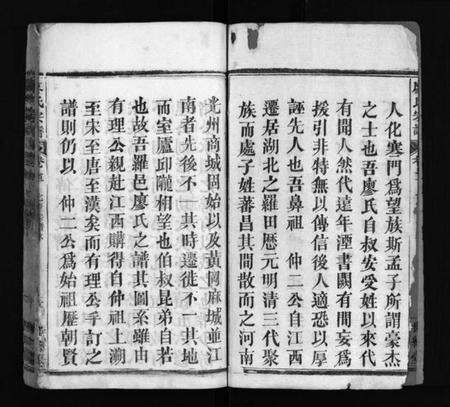 人化寒門為望族斯孟子所謂豪杰
之士也吾廖氏自叔安受姓以來代
有聞人然代遠年湮書闕有間妄為
援引非特無以傳信後人適恐以厚
誣先人也吾鼻祖 仲二公自江西
遷居湖北之羅田歷元明清三代聚
族而處子姓蕃昌其間散而之河南
光州商城固始以及黃岡麻城並江
南者先後不一其時遷徙不一其地
而室廬邱隴相望也伯叔昆弟自若
也故吾羅邑廖氏之譜其圖系雖由
有理公親赴江西購得自仲祖上溯
至宋至唐至漢矣而有理公手訂之
譜則仍以 仲二公為始祖歷朝賢